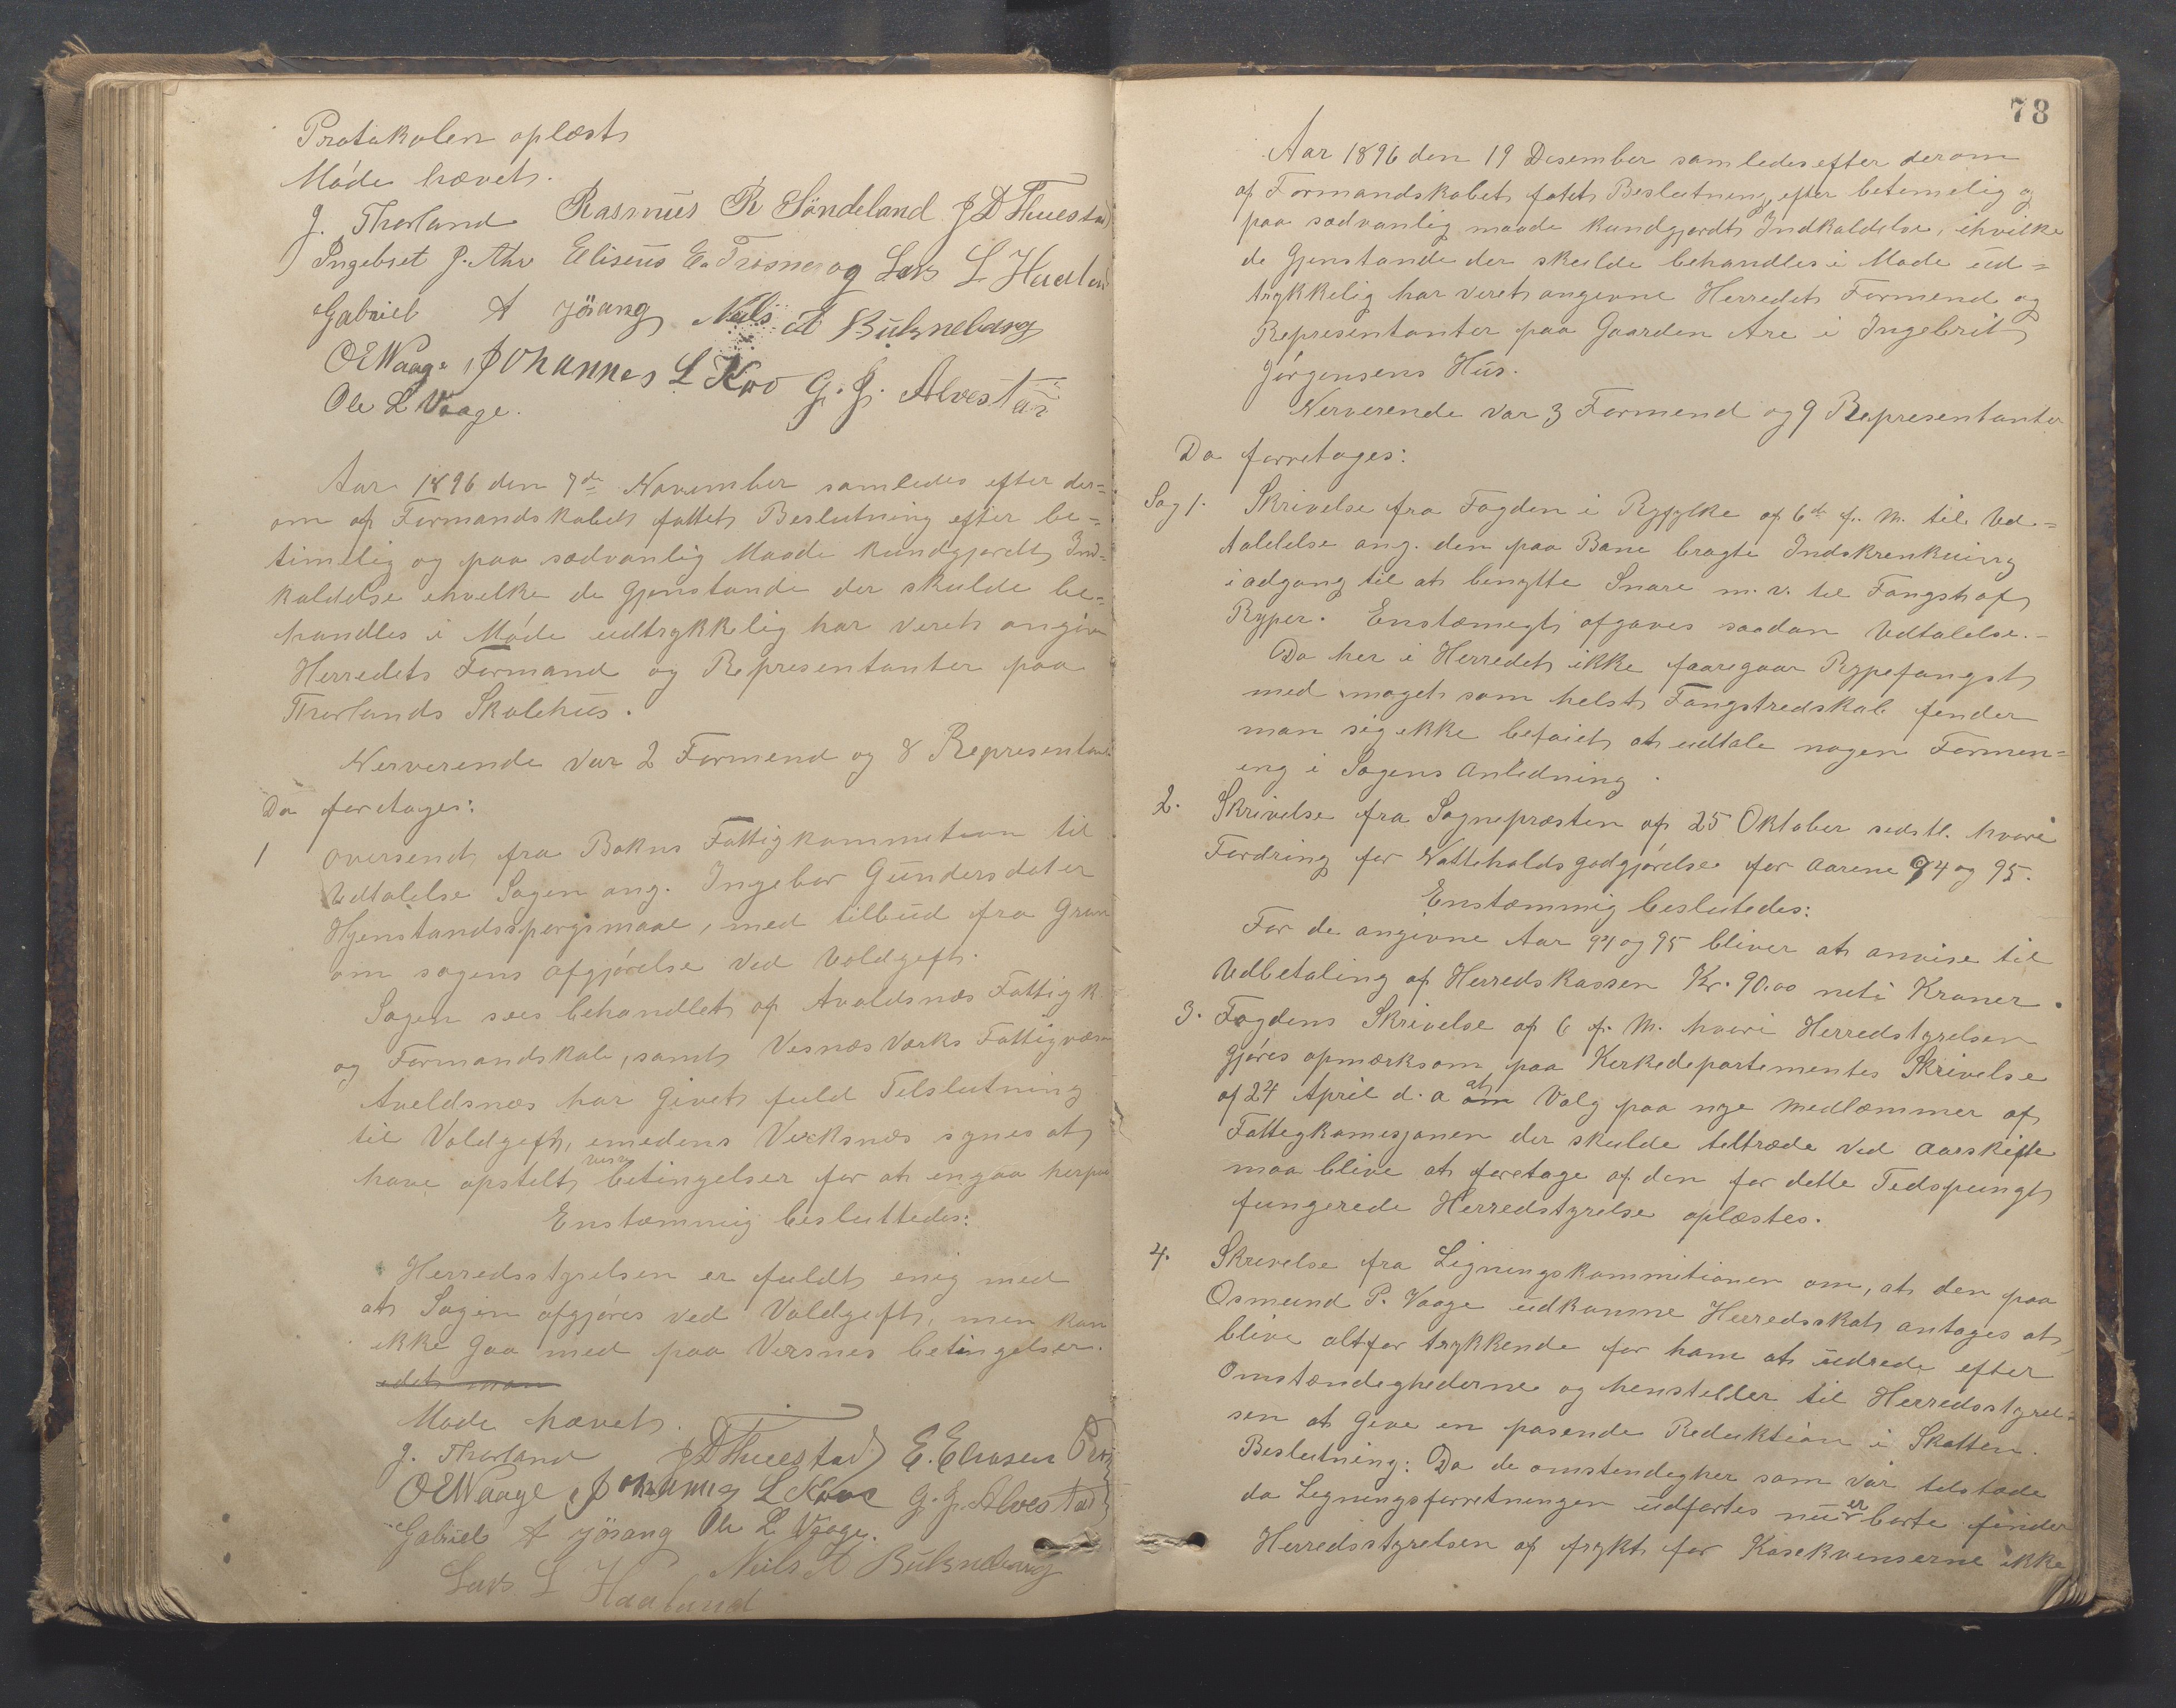 Protokolen oplæst
Møde hævet.
J. Thorland Rasmus R Søndeland J D Thuestad
Ingebret J. Are Eliseus E. Trosnavag Lars L Haaland
Gabriel A Jösang Nels A Buhneberg
OE Waage, Johannes L Kro G. J. Alvestad
Ole L Vaage.
Aar 1896 den 7de November samledes efter der=
om af Formandskabet fattet Beslutning efter be=
timelig og paa sædvanlig Maade kundgjordt Ind=
kaldelse ihvilke de Gjenstande der skulde be=
handles i Møde udtrykkelig har veret angivn
Herredets Formand og Representanter paa
Thorlands Skolehus.
Nerverende var 2 Formend og 8 Representan
Da foretages:
1 Oversendt fra Bokns Fattigkommition til
Udtalelse Sagen ang. Ingebor Gundersdater
Hjemstandsspørgsmaal, med tilbud fra
om sagens afgjørelse ved Voldgeft.
Sagen sees behandlet af Avaldsnæs Fattigk
og Formandskab, samt Visnæs Værks Fattigvæsn
Aveldsnæs har givet fuld Tilslutning
til Voldgeft, emedens Verksnæs synes at
have opstelt visse betingelser for at engaa herpaa
Enstæmmig besluttedes:
Herredsstyrelsen er fuldt enig med
at Sagen afgjøres ved Voldgeft, men kan
ikke gaa med paa Versnes betingelser.
edet man
Møde hævet.
J. Thorland J D Thuestad E. Eliasen
OE Waage, Johannes L Kroe G. J. Alvestad
Gabriel A Jösang Ole L Vaage.
Lars L Haaland Nels A Buhneberg
78
Aar 1896 den 19 Desember samledes efter derom
af Formandskabet fatet Beslutning, efter betimelig og
paa sædvanlig maade kundgjordt Indkaldelse, ihvilke
de Gjenstande der skulde behandles i Møde ud=
trykkelig har veret angivne Herredets Formend og
Representanter paa Gaarden Are i Ingebrit
Jørgensens Hus.
Nerverende var 3 Formend og 9 Representanter
Da forretages:
Sag 1. Skrivelse fra Fogden i Ryfylke af 6te f. M. til Ud=
taldelse ang. den paa Bane bragte Indskrenkning
i adgang til at benytte Snare m. v. til Fangst af
Ryper. Enstæmegt afgaves saadan Udtalelse.-
Da her i Herredet ikke faaregaar Rypefangst
med noget som helst Fangstredskab finder
man sig ikke beføiet at udtale nogen Formen=
eng i Sagens Anledning.
2. Skrivelse fra Sognepræsten af 25 Oktober sidstl. hvori
Fordring for Natteholdsgodgjørelse for Aarene 94 og 95.
Enstæmmig beslutedes:
For de angivne Aar 94 og 95 bliver at anvise til
Udbetaling af Herredskassen Kr. 90.00 neti Kroner.
3. Fogdens Skrivelse af 6 f. M. hvori Herredstyrelsen
gjøres opmærksom paa Kerkedepartementes Skrivelse
af 24 April d. a om at Valg paa nye Medlæmmer af
Fattegkomesjonen der skulde teltræde ved Aarskifte
maa blive at foretage af den for dette Tedspungt
fungerede Herredstyrelse oplæstes.
4. Skrivelse fra Ligningskommitionen om, at den paa
Osmund P. Vaage udkomne Herredsskat antages at
blive altfor trykkende for ham at udrede efter
Omstændeghederne og henstiller til Herredsstyrel=
sen at Geve en pasende Reduktion i Skatten.
Beslutning: Da de omstendegher som var telstæde
da Legningsforretningen udførtes nu er borte finder
Herredsstyrelsen af frykt for Kosekvenserne ikke